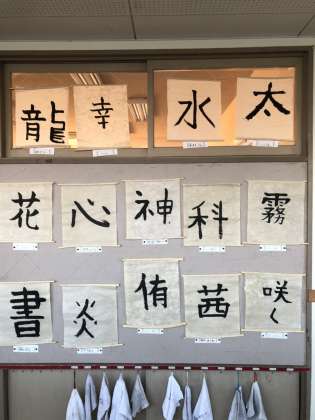 龍 幸 水 太
花 心 神 科 霧
書 炎 侑 茜 咲く